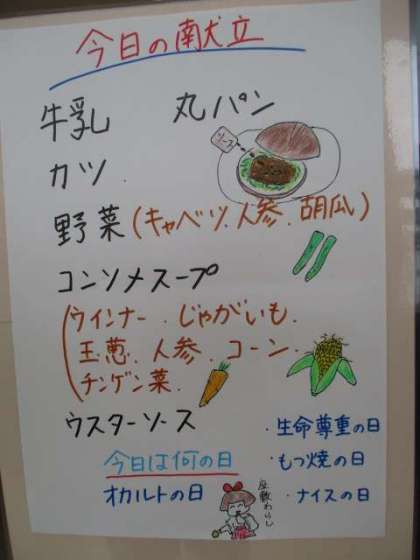 今日の献立
牛乳 丸パン
カツ
ソース
野菜(キャベツ.人参.胡瓜)
コンソメスープ
(ウインナー.じゃがいも.
玉葱.人参.コーン.
チンゲン菜.
ウスターソース
今日は何の日
オカルトの日
・生命尊重の日
・もつ焼の日
・ナイスの日
座敷わらし